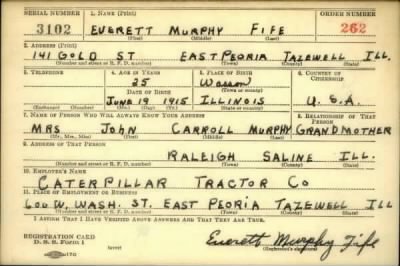 SERIAL NUMBER 1. NAME (Print) ORDER NUMBER
3102 EVERETT MURPHY FIFE 262
(First) (Middle) (Last)
2. ADDRESS (Print)
141 GOLD ST EAST PEORIA TAZEWELL ILL.
(Number and street or R. F. D. number) (Town) (County) (State)
3. TELEPHONE 4. AGE IN YEARS 5. PLACE OF BIRTH 6. COUNTRY OF CITIZENSHIP
25 Wasson
DATE OF BIRTH (Town or county)
JUNE 19 1915 ILLINOIS U.S.A.
(Exchange) (Number) (Mo.) (Day) (Yr.) (State or country)
7. NAME OF PERSON WHO WILL ALWAYS KNOW YOUR ADDRESS 8. RELATIONSHIP OF THAT PERSON
MRS JOHN CARROLL MURPHY GRANDMOTHER
(Mr., Mrs., Miss) (First) (Middle) (Last)
9. ADDRESS OF THAT PERSON
RALEIGH SALINE ILL.
(Number and street or R. F. D. number) (Town) (County) (State)
10. EMPLOYER'S NAME
CATERPILLAR TRACTOR CO
11. PLACE OF EMPLOYMENT OR BUSINESS
600 W. WASH. ST. EAST PEORIA TAZEWELL ILL
(Number and street or R. F. D. number) (Town) (County) (State)
I AFFIRM THAT I HAVE VERIFIED ABOVE ANSWERS AND THAT THEY ARE TRUE.
REGISTRATION CARD
D. S. S. Form 1 (over) Everett Murphy Fife
(Registrant's signature)